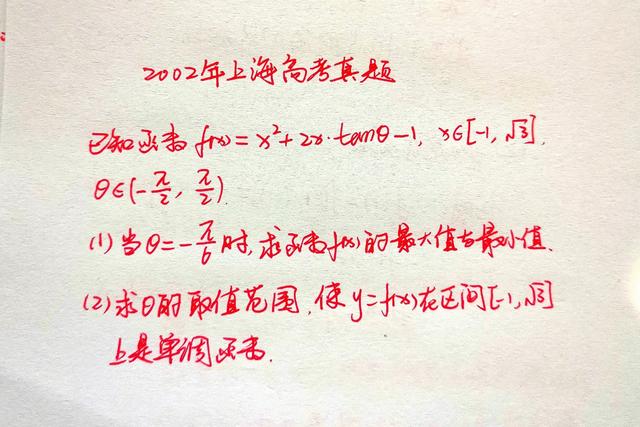 2002年上海高考真题
已知函数 f(x)=x²+2x·tanθ-1, x∈[-1,√3],
θ∈(-π/2, π/2)
(1)当θ=-π/6时,求函数f(x)的最大值与最小值.
(2)求θ的取值范围,使y=f(x)在区间[-1,√3]
上是单调函数.